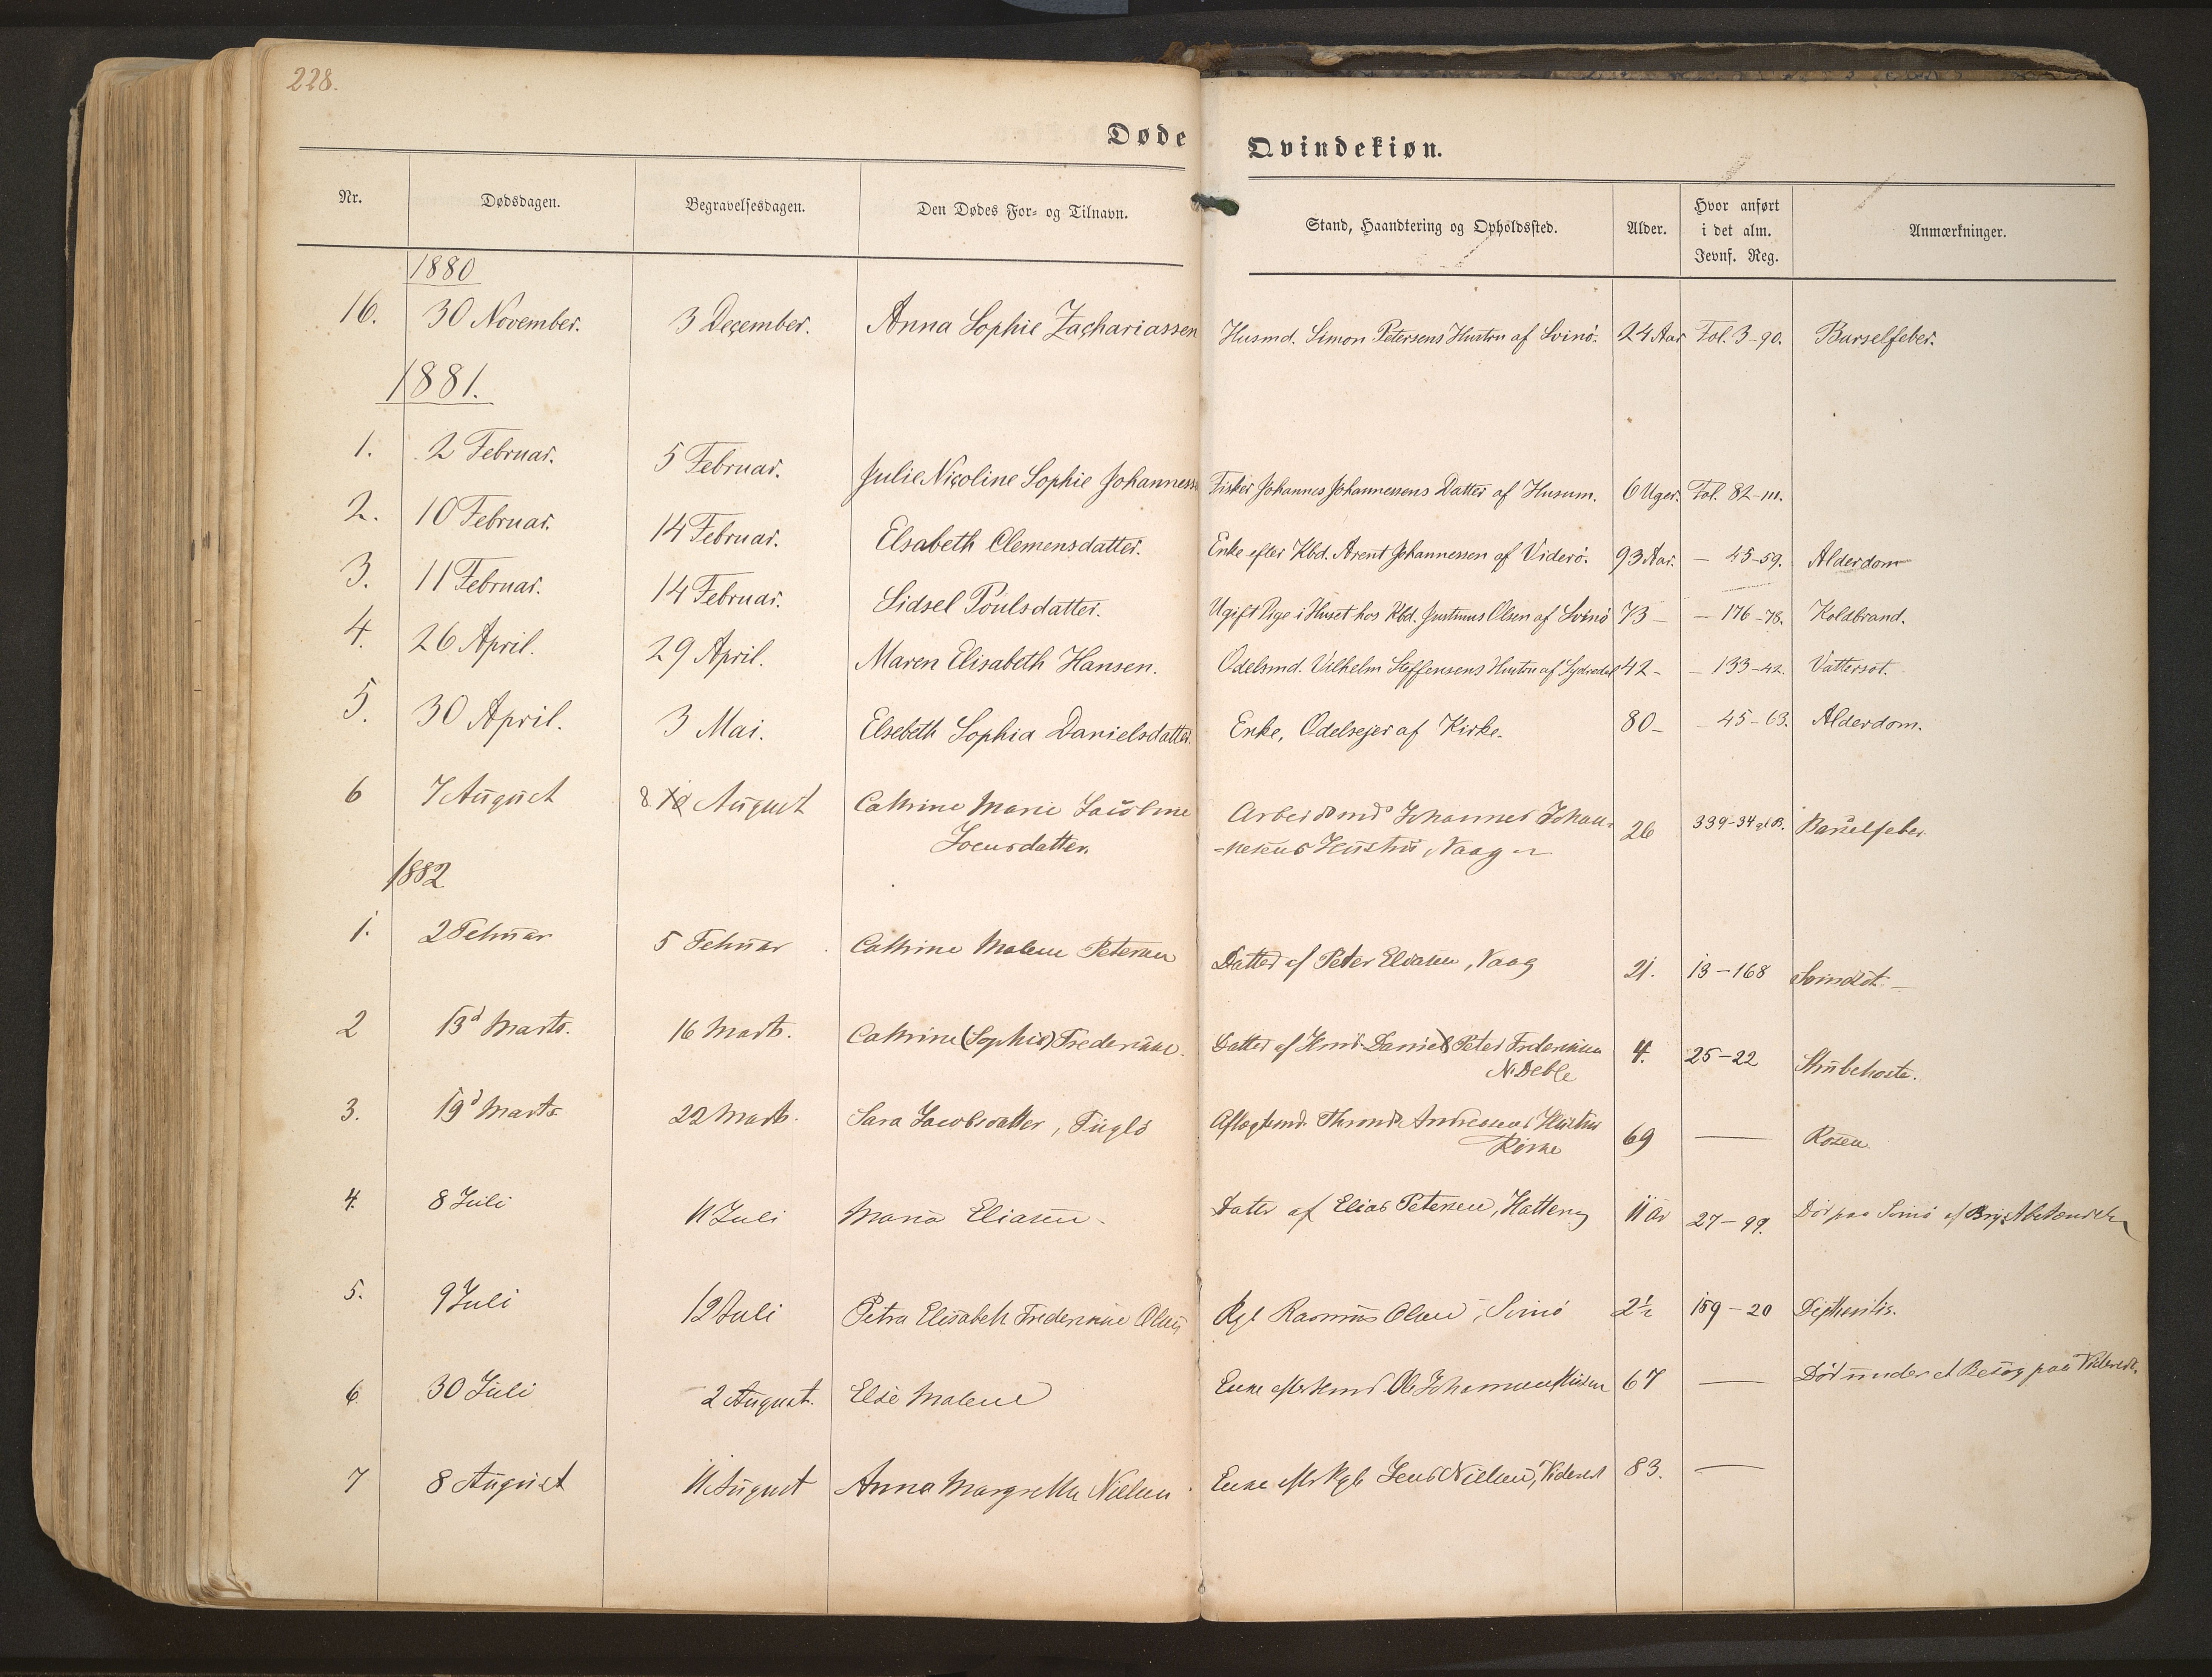 228.
Døde Qvindekiøn.
Nr. Dødsdagen. Begravelsesdagen. Den Dødes For- og Tilnavn. Stand, Haandtering og Opholdssted. Alder. Hvor anført i det alm. Jevnf. Reg. Anmærkninger.
1880
16. 30 November. 3 December. Anna Sophie Zachariassen Husmd. Simon Petersens Hustru af Svinö. 24 Aar Fol. 3-90. Barselfeber.
1881.
1. 2 Februar. 5 Februar. Julie Nicoline Sophie Johannessen Fisker Johannes Johannessens Datter af Husum. 6 Uger. Fol. 82-111.
2. 10 Februar. 14 Februar. Elsabeth Clemensdatter. Enke efter Kbd. Arent Johannessen af Viderö. 93 Aar. — 45-59. Alderdom
3. 11 Februar. 14 Februar. Sidsel Poulsdatter. Ugift Pige i Huset hos Kbd. Justinus Olsen af Svinö 73 — — 176-78. Koldbrand.
4. 26 April. 29 April. Maren Elisabeth Hansen. Odelsmd. Vilhelm Steffensens Hustru af Sydredal 42 - — 133-42. Vattersot.
5. 30 April. 3 Mai. Elsebeth Sophia Danielsdatter. Enke, Odelsejer af Kirke. 80 - — 45-63. Alderdom.
6 7 August 8 10 August Cathrine Marie Jacobine
Joensdatter. Arbeidsmd Johannes Johan-
-nesens Hustru, Vaag 26 339-34 Barselfeber
1882
1. 2 Februar 5 Februar Cathrine Malene Petersen Datter af Peter Eliasen, Vaag 21. 13-168 Svindsot. —
2 13d Marts. 16 Marts. Cathrine (Sophie) Frederikke. Datter af Daniel Peter Frederiksen
N. Deble 4. 25-22 Strubehoste.
3. 19d Marts 22 Marts. Sara Jacobsdatter, Fuglö Aftægtsmd. Thrond Andreasens Hustru
Kirke 69 — Rosen
4. 8 Juli 11 Juli Maria Eliasen. Datter af Elias Petersen, Hattervig 11 Ar 27-99. Död paa Svinö af
5. 9 Juli 12 Juli Petra Elisabeth Frederikke Olsen Kgb Rasmus Olsen, Svinö 2½ 159-20 Diphteritis.
6. 30 Juli 2 August. Else Malene Enke efter Ole Johannesen 67 — Död under et Besög paa Videreide.
7 8 August 11 August Anna Margretha Nielsen Enke efter Kgb Jens Nielsen, Videreid 83. —